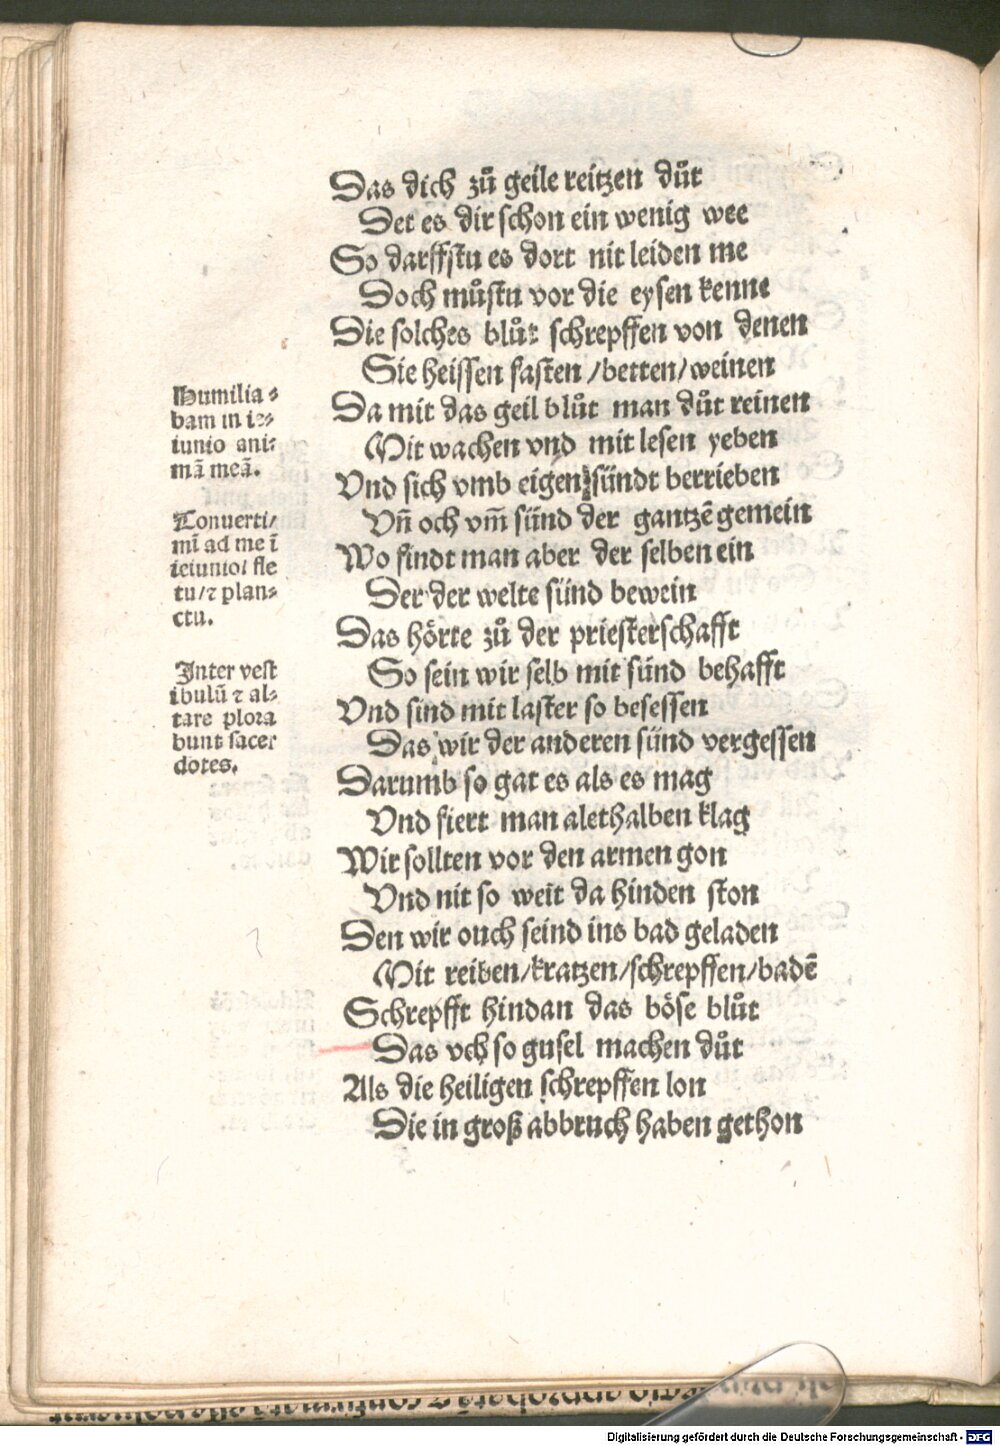 Das dich zů geile reitzen důt
Det es dir schon ein wenig wee
So darffstu es dort nit leiden me
Doch můstu vor die eysen kenne
Die solches blůt schrepffen von denen
Sie heissen fasten/betten/weinen
Da mit das geil blůt man důt reinen
Mit wachen vnd mit lesen yeben
Vnd sich vmb eigen sündt berrieben
Vñ och vm̃ sünd der gantzẽ gemein
Wo findt man aber der selben ein
Der der welte sünd bewein
Das hörte zů der priesterschafft
So sein wir selb mit sünd behafft
Vnd sind mit laster so besessen
Das wir der anderen sünd vergessen
Darumb so gat es als es mag
Vnd fiert man alethalben klag
Wir sollten vor den armen gon
Vnd nit so weit da hinden ston
Den wir ouch seind ins bad geladen
Mit reiben/kratzen/schrepffen/badẽ
Schrepfft hindan das böse blůt
Das vch so gusel machen důt
Als die heiligen schrepffen lon
Die in groß abbruch haben gethon
Humilia⸗
bam in ie⸗
iunio ani⸗
mã meã.
Conuerti/
mĩ ad me ĩ
ieiunio/ fle
tu/⁊ plan⸗
ctu.
Inter vest
ibulũ ⁊ al⸗
tare plora
bunt sacer
dotes.
Digitalisierung gefördert durch die Deutsche Forschungsgemeinschaft - DFG